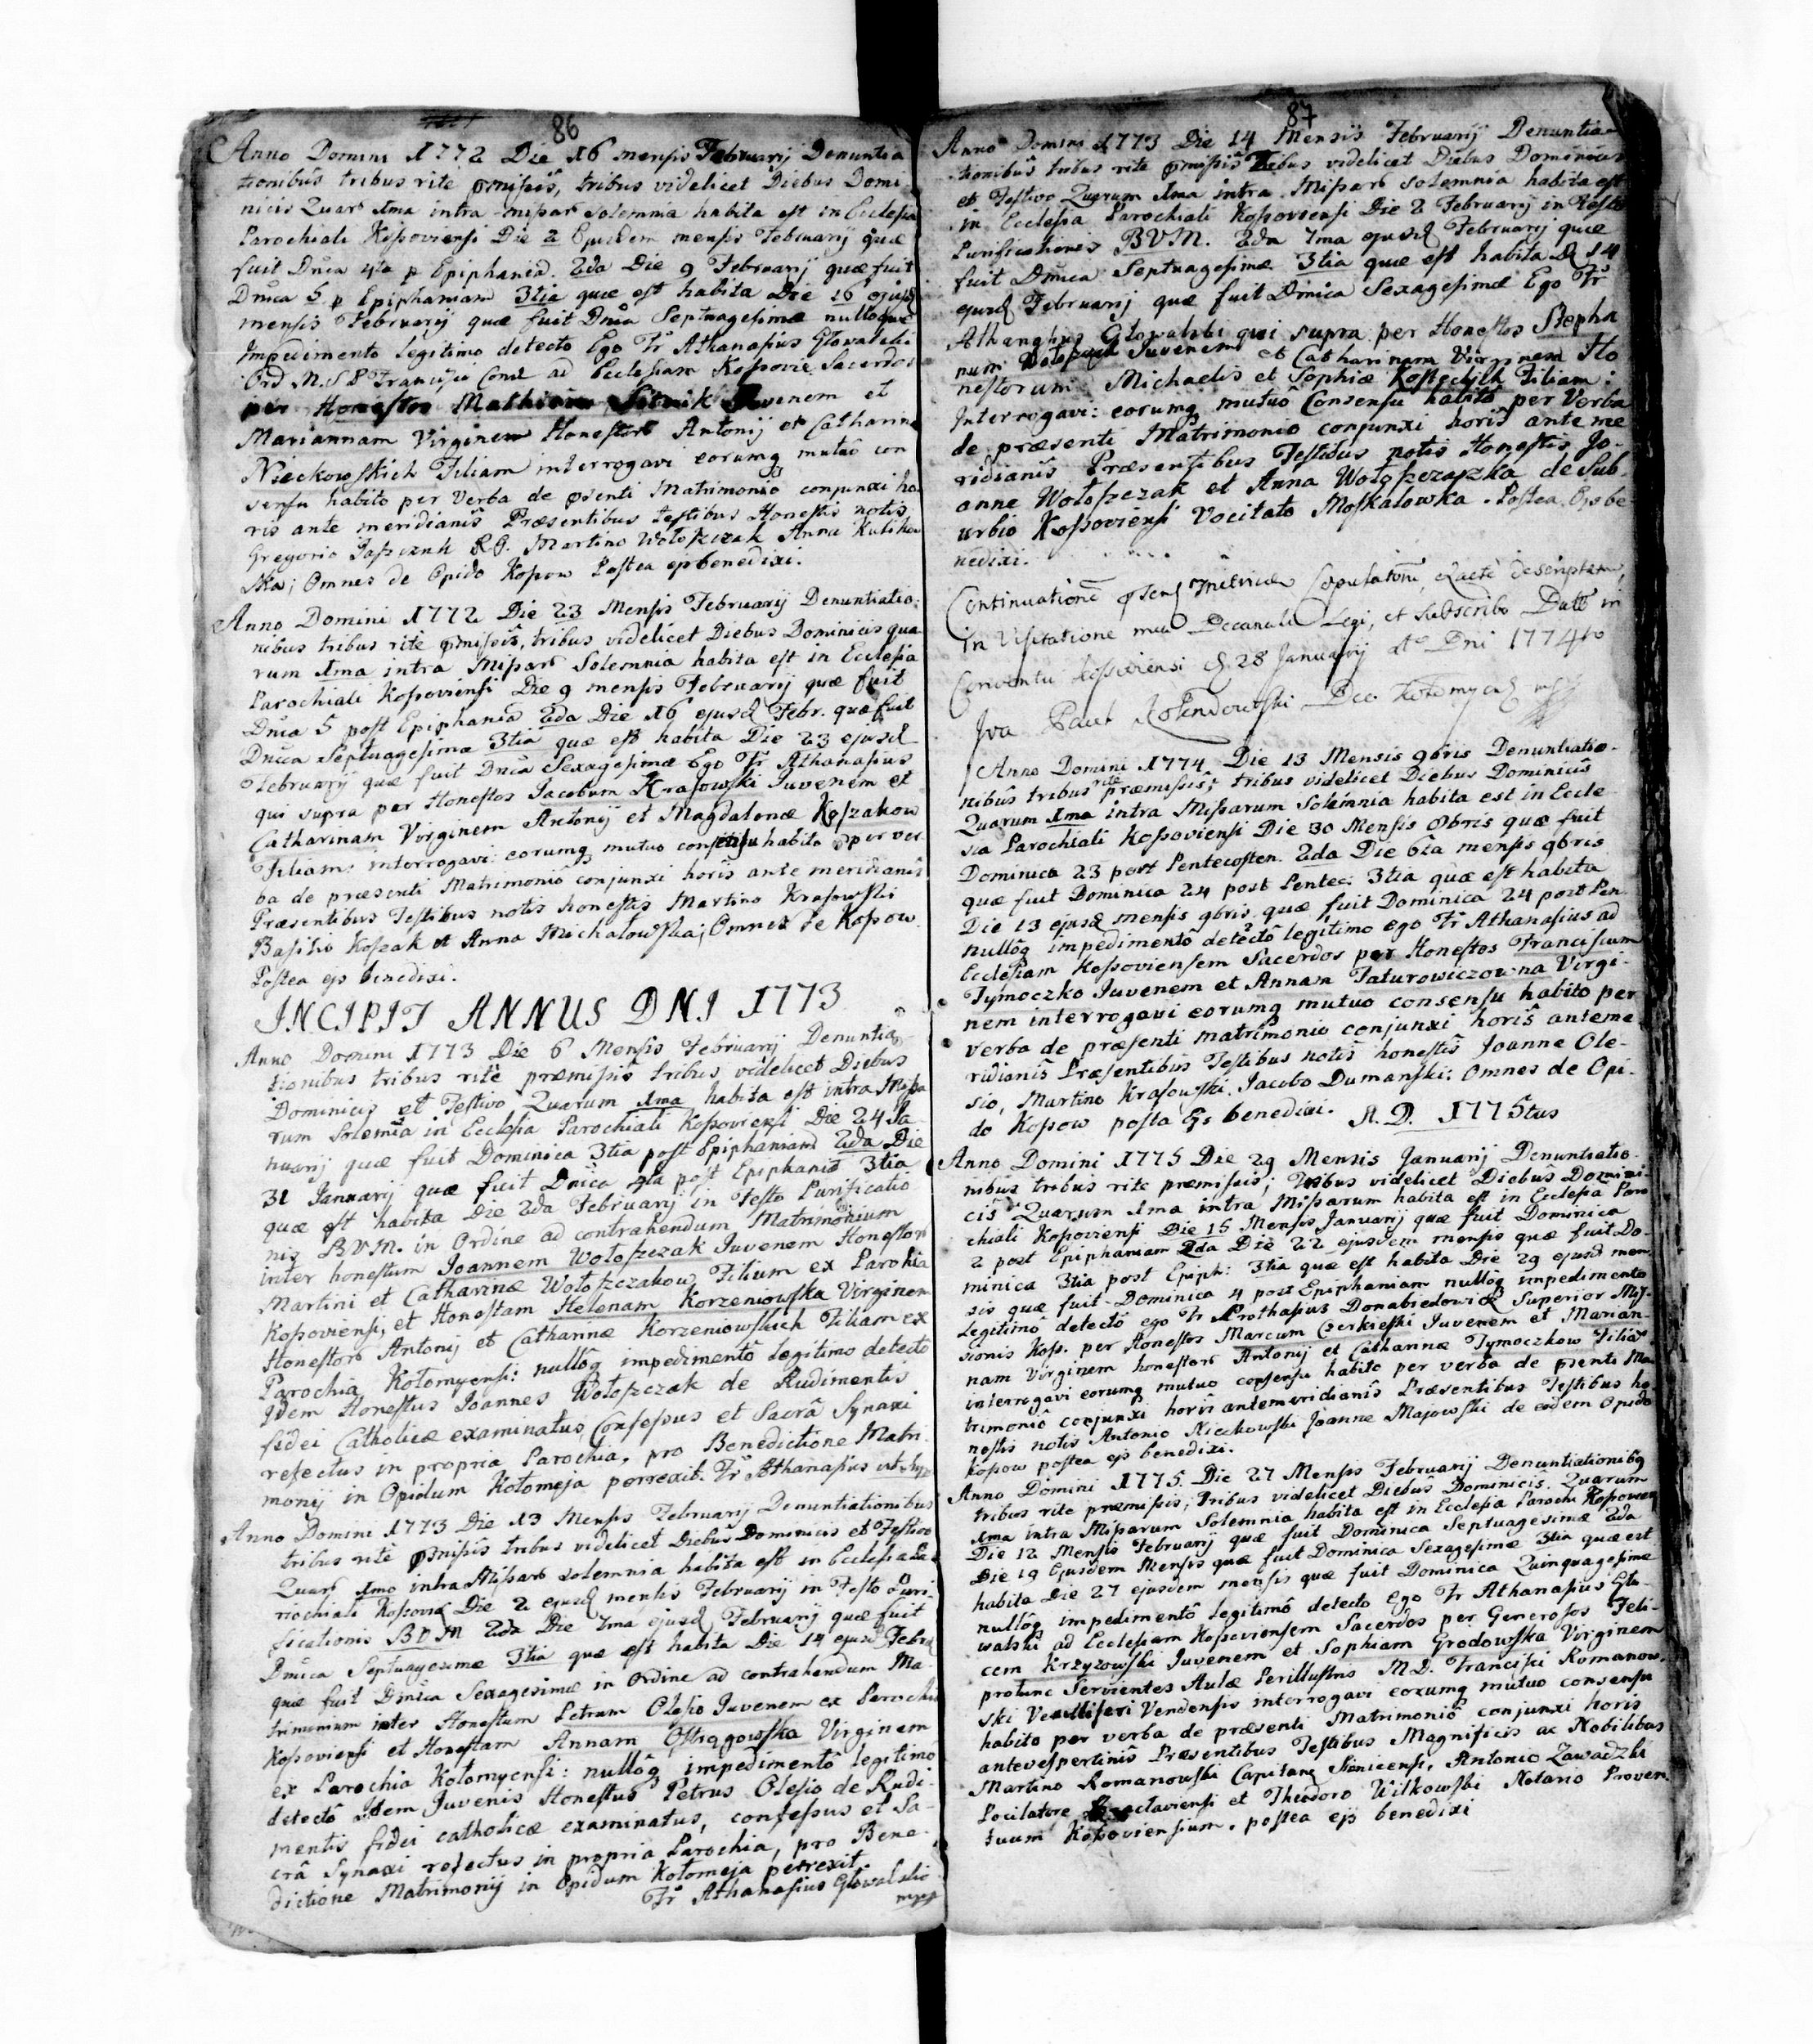 86
Anno Domini 1772 Die 16 mensis Februarij Denuntia
tionibus tribus rite pmissis, tribus videlicet Diebus Domi
nicis Quar 1ma intra missar solemnia habita est in Ecclesia
Parochiali Kossoviensi Die 2 Ejusdem mensis Februarij quæ
fuit Dnica 4ta p Epiphaniā. 2da Die 9 Februarij quæ fuit
Dnica 5 p Epiphaniam 3tia quæ est habita Die 16 ejusd
mensis Februarij quæ fuit Dnica Septuagesimæ nulloque
Impedimento legitimo detecto Ego Fr Athanasius Głowalski
Ord M. S P Francisci Conv. ad Ecclesiam Kossovie Sacerdos
per Honestos Mathiam Sitnik Juvenem et
Mariannam Virginem Honestor Antonij et Catharinæ
Nieckowskich Filiam interrogavi eorumq mutuo con
sensu habito per Verba de psenti Matrimonio conjunxi ho
ris ante meridianis Præsentibus testibus Honestis notis
Gregorio R.G. Martino Wołoszczak Anna Kulikow
ska; Omnes de Opido Kossow Postea ejs benedixi.
Anno Domini 1772 Die 23 Mensis Februarij Denuntiatio
nibus tribus rite pmissis, tribus videlicet Diebus Dominicis qua
rum 1ma intra Missar Solemnia habita est in Ecclesia
Parochiali Kossoviensi Die 9 mensis Februarij quæ fuit
Dnica 5 post Epiphaniā 2da Die 16 ejusd Febr. quæ fuit
Dnica Septuagesimæ 3tia quæ est habita Die 23 ejusd
Februarij quæ fuit Dnica Sexagesimæ Ego Fr Athanasius
qui supra per Honestos Jacobum Krasowski Juvenem et
Catharinam Virginem Antonij et Magdalenæ Koszakow
Filiam interrogavi: eorumq mutuo consensu habito per ver
ba de præsenti Matrimoniô conjunxi horis ante meridianis
Præsentibus Testibus notis honestis Martino Krasowski
Basilio Koszak et Anna Michałowska; Omnes de Kossow
Postea ejs benedixi.
INCIPIT ANNUS DNI 1773
Anno Domini 1773 Die 6 Mensis Februarij Denuntia
tionibus tribus rite præmissis tribus videlicet Diebus
Dominicis et Festivo Quarum 1ma habita est intra Missa
rum Solemnia in Ecclesia Parochiali Kossoviensi Die 24 Ja
nuarij quæ fuit Dominica 3tia post Epiphaniam 2da Die
31 Januarij quæ fuit Dnica 4ta post Epiphaniā 3tia
quæ est habita Die 2da Februarij in Festo Purificatio
nis B.V.M. in Ordine ad contrahendum Matrimonium
inter honestum Joannem Wołoszczak Juvenem Honestor
Martini et Catharinæ Wołoszczakow Filium ex Parochia
Kossoviensi, et Honestam Helenam Korzeniowska Virginem
Honestor Antonij et Catharinæ Korzeniowskich Filiam ex
Parochia Kołomyensi: nullôq impedimentô legitimo detecto
Idem Honestus Joannes Wołoszczak de Rudimentis
fidei Catholicæ examinatus Confessus et Sacrâ Synaxi
refectus in propria Parochia, pro Benedictione Matri
monij in Opidum Kołomeja perrexit. Fr Athanasius ut supr
Anno Domini 1773 Die 13 Mensis Februarij Denuntiationibus
tribus rite pmissis tribus videlicet Diebus Dominicis et Festivo
Quar 1ma intra Missar solemnia habita est in Ecclesia Pa
rochiali Kossoviē Die 2 ejusd mensis Februarij in Festo Puri
ficationis B V M 2da Die 7ma ejusd Februarij quæ fuit
Dnica Septuagesimæ 3tia quæ est habita Die 14 ejusd Febru
quæ fuit Dnica Sexagesimæ in Ordine ad contrahendum Ma
trimonium inter Honestum Petrum Olesio Juvenem ex Parochia
Kossoviensi et Honestam Annam Ostrągowska Virginem
ex Parochia Kołomyensi: nullôq impedimentô legitimô
detectô Idem Juvenis Honestus Petrus Olesio de Rudi
mentis fidei catholicæ examinatus, confessus et Sa
crâ Synaxi refectus in propria Parochia, pro Bene
dictione Matrimonij in Opidum Kołomeja perrexit.
Fr Athanasius Głowalski
mpp
87
Anno Domini 1773 Die 14 Mensis Februarij Denuntia
tionibus tribus rite pmissis Tribus videlicet Diebus Dominicis
et Festivo Quarum 1ma intra Missar solemnia habita est
in Ecclesia Parochiali Kossoviensi Die 2 Februarij in Festo
Purificationis B.V.M. 2da 7ma ejusd Februarij quæ
fuit Dnica Septuagesimæ 3tia quæ est habita D 14
ejusd Februarij quæ fuit Dnica Sexagesimæ Ego Fr
Athanasius Głowalski qui supra per Honestos Stepha
num Wołoszczak Juvenem et Catharinam Virginem Ho
nestorum Michaelis et Sophiæ Kosteckich Filiam:
Interrogavi: eorumq mutuô Consensu habitô per Verba
de præsenti Matrimonio conjunxi horis ante me
ridianis Præsentibus Testibus notis Honestis Jo
anne Wołoszczak et Anna Wołoszczaszka de Sub
urbio Kossoviensi Vocitato Moskalowka. Postea Ejs be
nedixi.
Continuationē psenš Metricæ Copulatorū, exactè descriptam,
in Visitatione mea Decanali Legi, et subscribo Datt in
Conventu Kossoviensi d. 28 Januarij Ao Dni 1774to
Iva Pawł Kołendowski Dec: Kołomycen mpp
Anno Domini 1774 Die 13 Mensis 9bris Denuntiatio
nibus tribus rite præmissis; tribus videlicet Diebus Dominicis
Quarum 1ma intra Missarum Solemnia habita est in Eccle
sia Parochiali Kossoviensi Die 30 Mensis Obris quæ fuit
Dominica 23 post Pentecosten. 2da Die 6ta mensis 9bris
quæ fuit Dominica 24 post Pentec: 3tia quæ est habita
Die 13 ejusd mensis 9bris quæ fuit Dominica 24 post Pen
nullôq impedimentô detectô legitimo ego Fr Athanasius ad
Ecclesiam Kossoviensem Sacerdos per Honestos Franciscum
Tymoczko Juvenem et Annam Taturowiczowna Virgi
nem interrogavi eorumq mutuo consensu habito per
verba de præsenti matrimonio conjunxi horis anteme
ridianis Præsentibus Testibus notis honestis Joanne Ole
sio, Martino Krasowski. Jacobo Dumanski: Omnes de Opi
do Kossow posta Ejs benedixi. A. D. 1775tus
Anno Domini 1775 Die 29 Mensis Januarij Denuntiatio
nibus tribus rite præmissis; Tribus videlicet Diebus Domini
cis Quarum 1ma intra Missarum habita est in Ecclesia Paro
chiali Kossoviensi Die 15 Mensis Januarij quæ fuit Dominica
2 post Epiphaniam 2da Die 22 ejusdem mensis quæ fuit Do
minica 3tia post Epiph: 3tia quæ est habita Die 29 ejusd men
sis quæ fuit Dominica 4 post Epiphaniam nullôq impedimento
Legitimô detectô ego Fr Prothasius Donabiedowicz Superior Mis
sionis Koss. per Honestos Marcum Czerkieski Juvenem et Marian
nam Virginem honestor Antonij et Catharinæ Tymoczkow Filiā
interrogavi eorumq mutuo consensu habito per verba de psenti Ma
trimoniô conjunxi horis antemeridianis Præsentibus Testibus ho
nestis notis Antonio Nieckowski Joanne Majowski de eodem Opido
Kossow postea ejs benedixi.
Anno Domini 1775. Die 27 Mensis Februarij Denuntiationibq
tribus rite præmissis; Tribus videlicet Diebus Dominicis. Quarum
1ma intra Missarum Solemnia habita est in Ecclesia Parochi Kossovien
Die 12 Mensis Februarij quæ fuit Dominica Septuagesimæ 2da
Die 19 Ejusdem Mensis quæ fuit Dominica Sexagesimæ 3tia quæ est
habita Die 27 ejusdem mensis quæ fuit Dominica Quinquagesimæ
nullôq impedimentô legitimô detecto Ego Fr Athanasius Gło
walski ad Ecclesiam Kossoviensem Sacerdos per Generosos Feli
cem Krzyzowski Juvenem et Sophiam Grodowska Virginem
protunc Servientes Aulæ Perillustris M.D. Francisci Romanow
ski Vexilliferi Vendensis interrogavi eorumq mutuo consensu
habito per verba de præsenti Matrimoniô conjunxi horis
antevespertinis Præsentibus Testibus Magnificis ac Nobilibus
Martino Romanowski Capitane Antonio Zawadzki
Pocilatore et Theodoro Wilkowski Notario Proven
tuum Kossoviensium. postea ejs benedixi